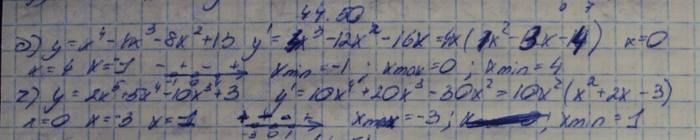 44.50
б) y=x⁴-4x³-8x²+13 y'=4x³-12x²-16x=4x(1x²-3x-4) x=0
x=4 x=-1 - + - + xmin=-1; xmax=0; xmin=4
г) y=2x⁵+5x⁴-10x³+3 y'=10x⁴+20x³-30x²=10x²(x²+2x-3)
x=0 x=-3 x=1 + - - + -3 0 1 xmax=-3; xmin=1